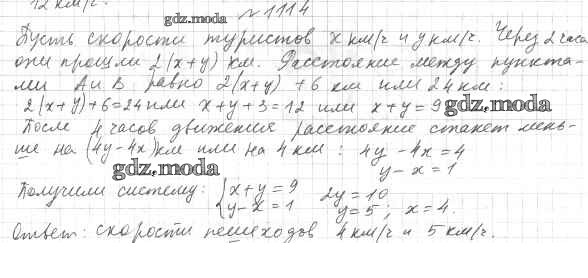 12 км/ч.
gdz.moda
№ 1114
Пусть скорости туристов x км/ч и y км/ч. Через 2 часа
они прошли 2(x+y) км. Расстояние между пункта-
ми A и B равно 2(x+y)+6 км или 24 км:
2(x+y)+6=24 или x+y+3=12 или x+y=9 gdz.moda
После 4 часов движения расстояние станет мень-
ше на (4y-4x)км или на 4 км: 4y-4x=4
gdz.moda y-x=1
Получили систему: { x+y=9 2y=10
y-x=1 y=5; x=4.
Ответ: скорости пешеходов 4 км/ч и 5 км/ч.